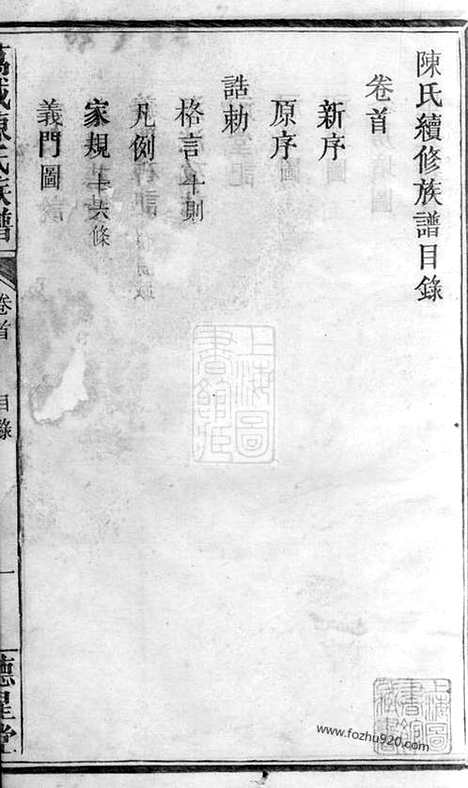 陳氏續修族譜目錄
卷首
新序
原序
誥勅
格言十則
凡例
家規十六條
義門圖
萬載陳氏族譜
卷首 目錄
一
德星堂
上海圖書館藏
上海圖書館藏書
www.fozhu920.com